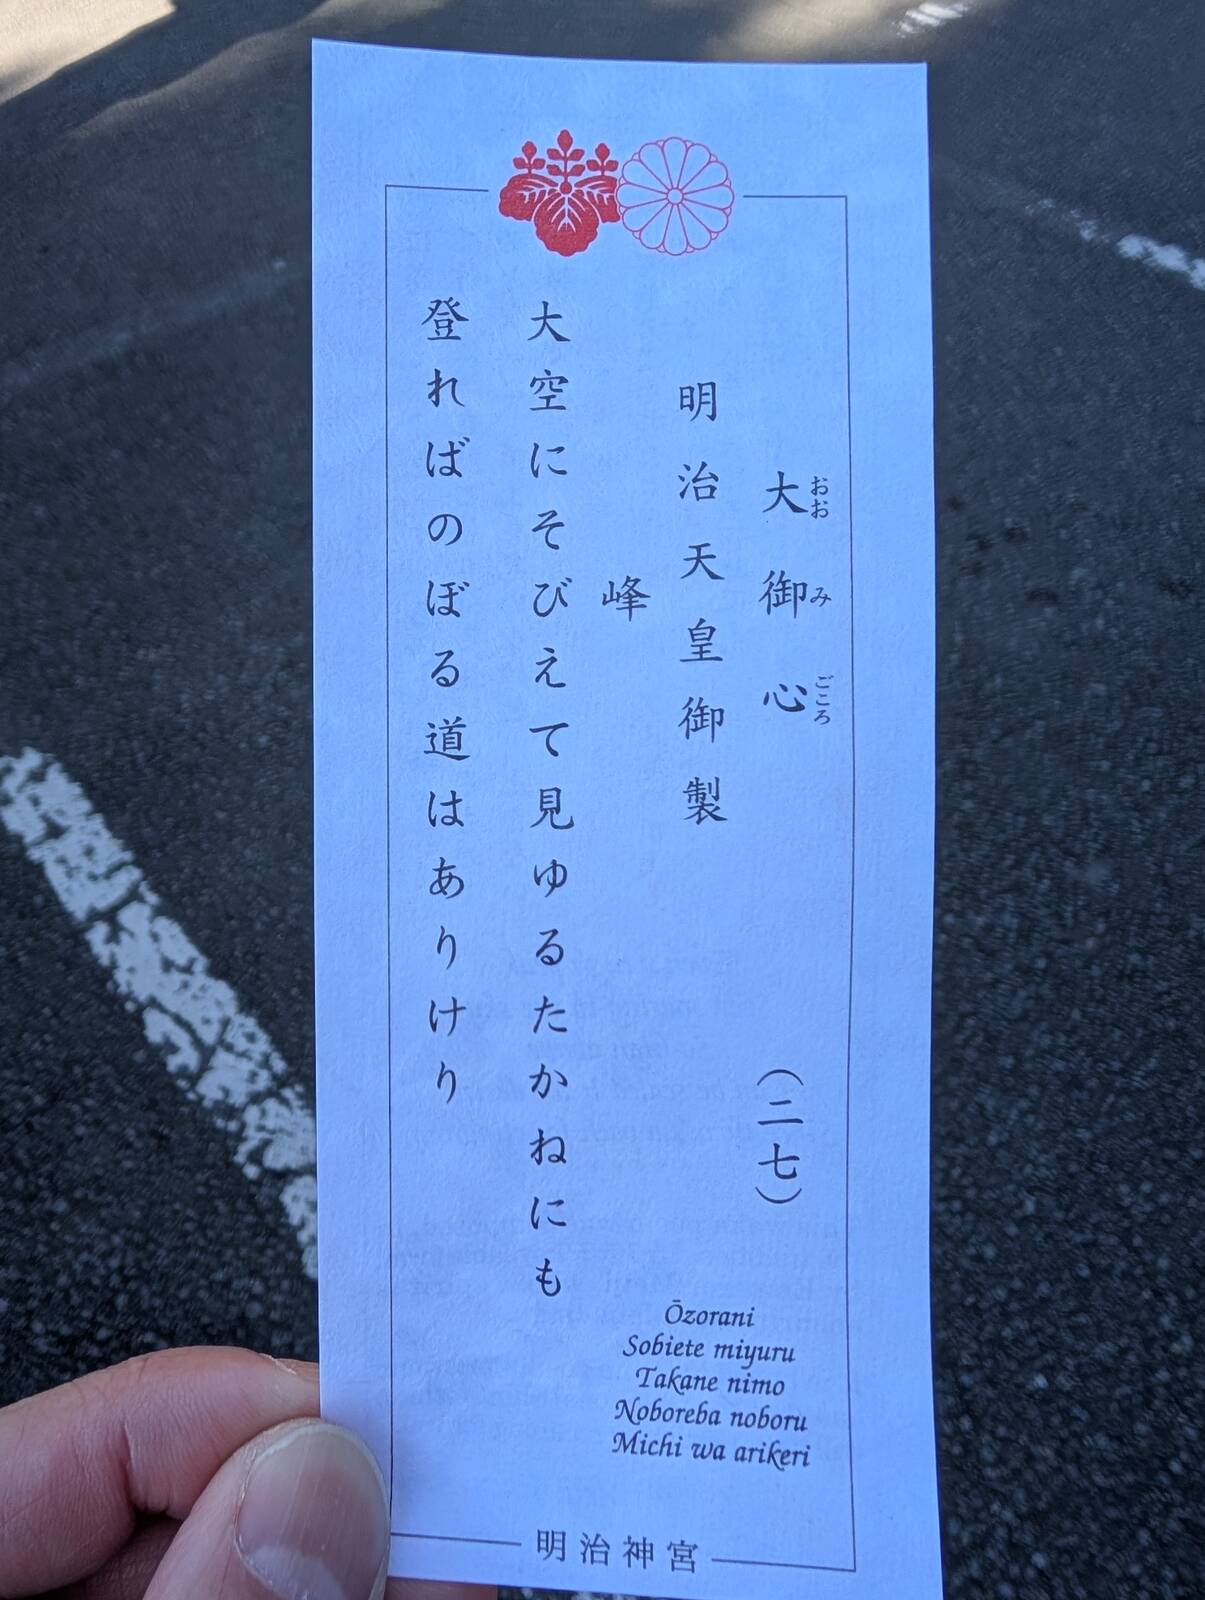 大御心
おおみごころ
（二七）
明治天皇御製
峰
大空にそびえて見ゆるたかねにも
登ればのぼる道はありけり
Ōzorani
Sobiete miyuru
Takane nimo
Noboreba noboru
Michi wa arikeri
明治神宮